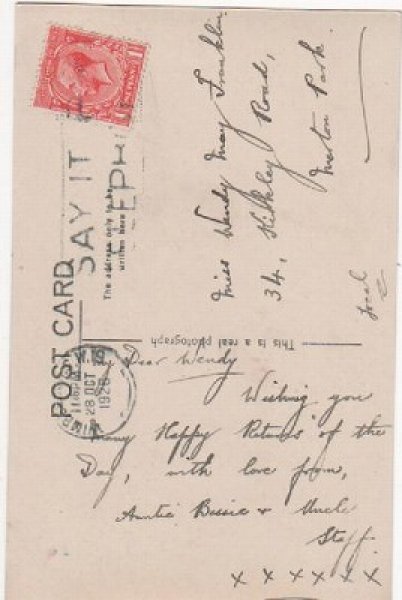 POST CARD
SAY IT
The address only to be
written here
Miss Wendy May Franklin
34, Kirkley Road,
Merton Park.
Local
This is a real photograph
28 OCT
My Dear Wendy
Wishing you
many Happy Returns of the
Day, with love from,
Auntie Bessie & Uncle
Staff.
x x x x x x x